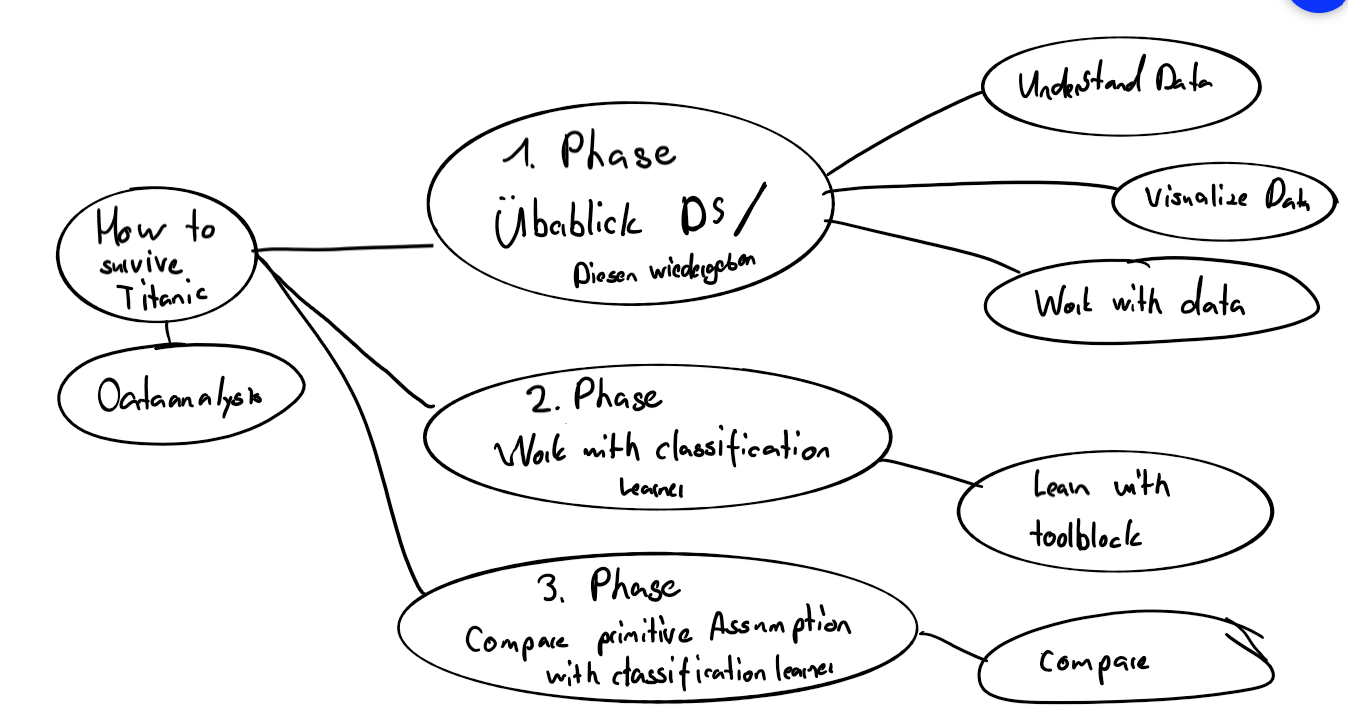 How to
survive
Titanic
Dataanalysis
1. Phase
Übablick DS/
Diesen wiedergeben
Understand Data
Visualize Data
Work with data
2. Phase
Work with classification
Learner
Learn with
toolblock
3. Phase
Compare primitive Assumption
with classification learner
Compare